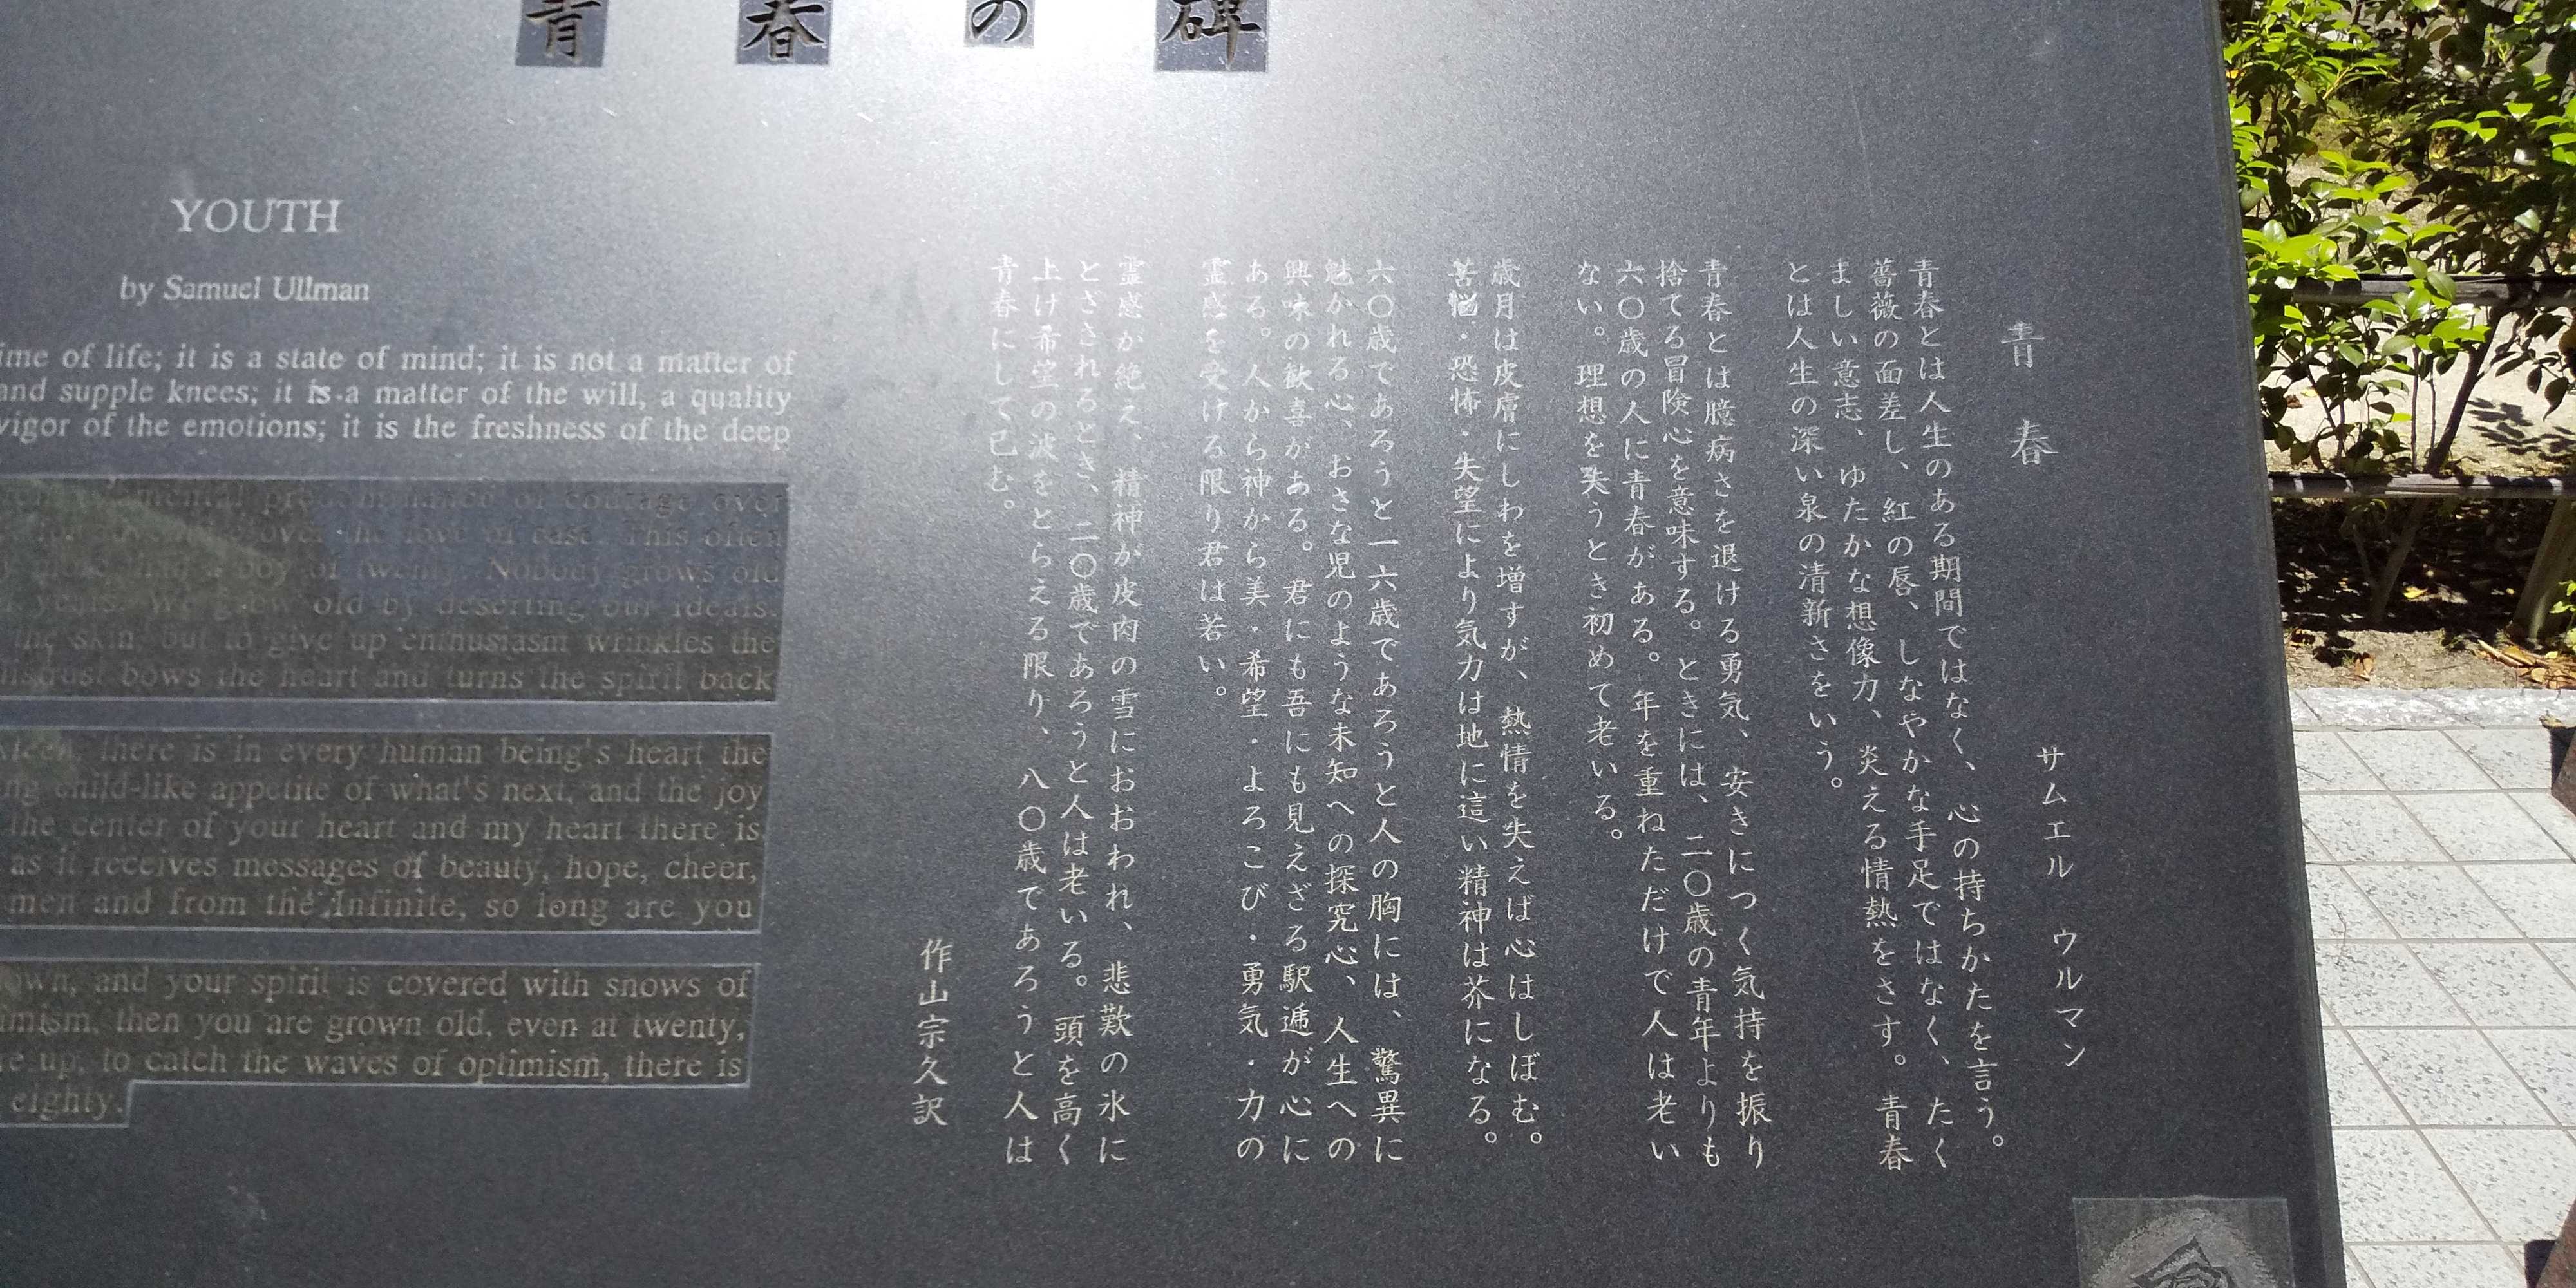 青春の碑
青春
サムエル ウルマン
青春とは人生のある期間ではなく、心の持ちかたを言う。
薔薇の面差し、紅の唇、しなやかな手足ではなく、たく
ましい意志、ゆたかな想像力、炎える情熱をさす。青春
とは人生の深い泉の清新さをいう。
青春とは臆病さを退ける勇気、安きにつく気持を振り
捨てる冒険心を意味する。ときには、二〇歳の青年よりも
六〇歳の人に青春がある。年を重ねただけで人は老い
ない。理想を失うとき初めて老いる。
歳月は皮膚にしわを増すが、熱情を失えば心はしぼむ。
苦悩・恐怖・失望により気力は地に這い精神は芥になる。
六〇歳であろうと一六歳であろうと人の胸には、驚異に
魅かれる心、おさな児のような未知への探究心、人生への
興味の歓喜がある。君にも吾にも見えざる駅逓が心に
ある。人から神から美・希望・よろこび・勇気・力の
霊感を受ける限り君は若い。
霊感が絶え、精神が皮肉の雪におおわれ、悲歎の氷に
とざされるとき、二〇歳であろうと人は老いる。頭を高く
上げ希望の波をとらえる限り、八〇歳であろうと人は
青春にして已む。
作山宗久訳
YOUTH
by Samuel Ullman
ime of life; it is a state of mind; it is not a matter of
and supple knees; it is a matter of the will, a quality
vigor of the emotions; it is the freshness of the deep
mental predominance of courage over
over the love of ease. This often
a boy of twenty. Nobody grows old
years. We grow old by deserting our ideals.
the skin but to give up enthusiasm wrinkles the
bows the heart and turns the spirit back
there is in every human being's heart the
child-like appetite of what's next, and the joy
the center of your heart and my heart there is
as it receives messages of beauty, hope, cheer,
men and from the Infinite, so long are you
own, and your spirit is covered with snows of
then you are grown old, even at twenty,
re up, to catch the waves of optimism, there is
eighty.